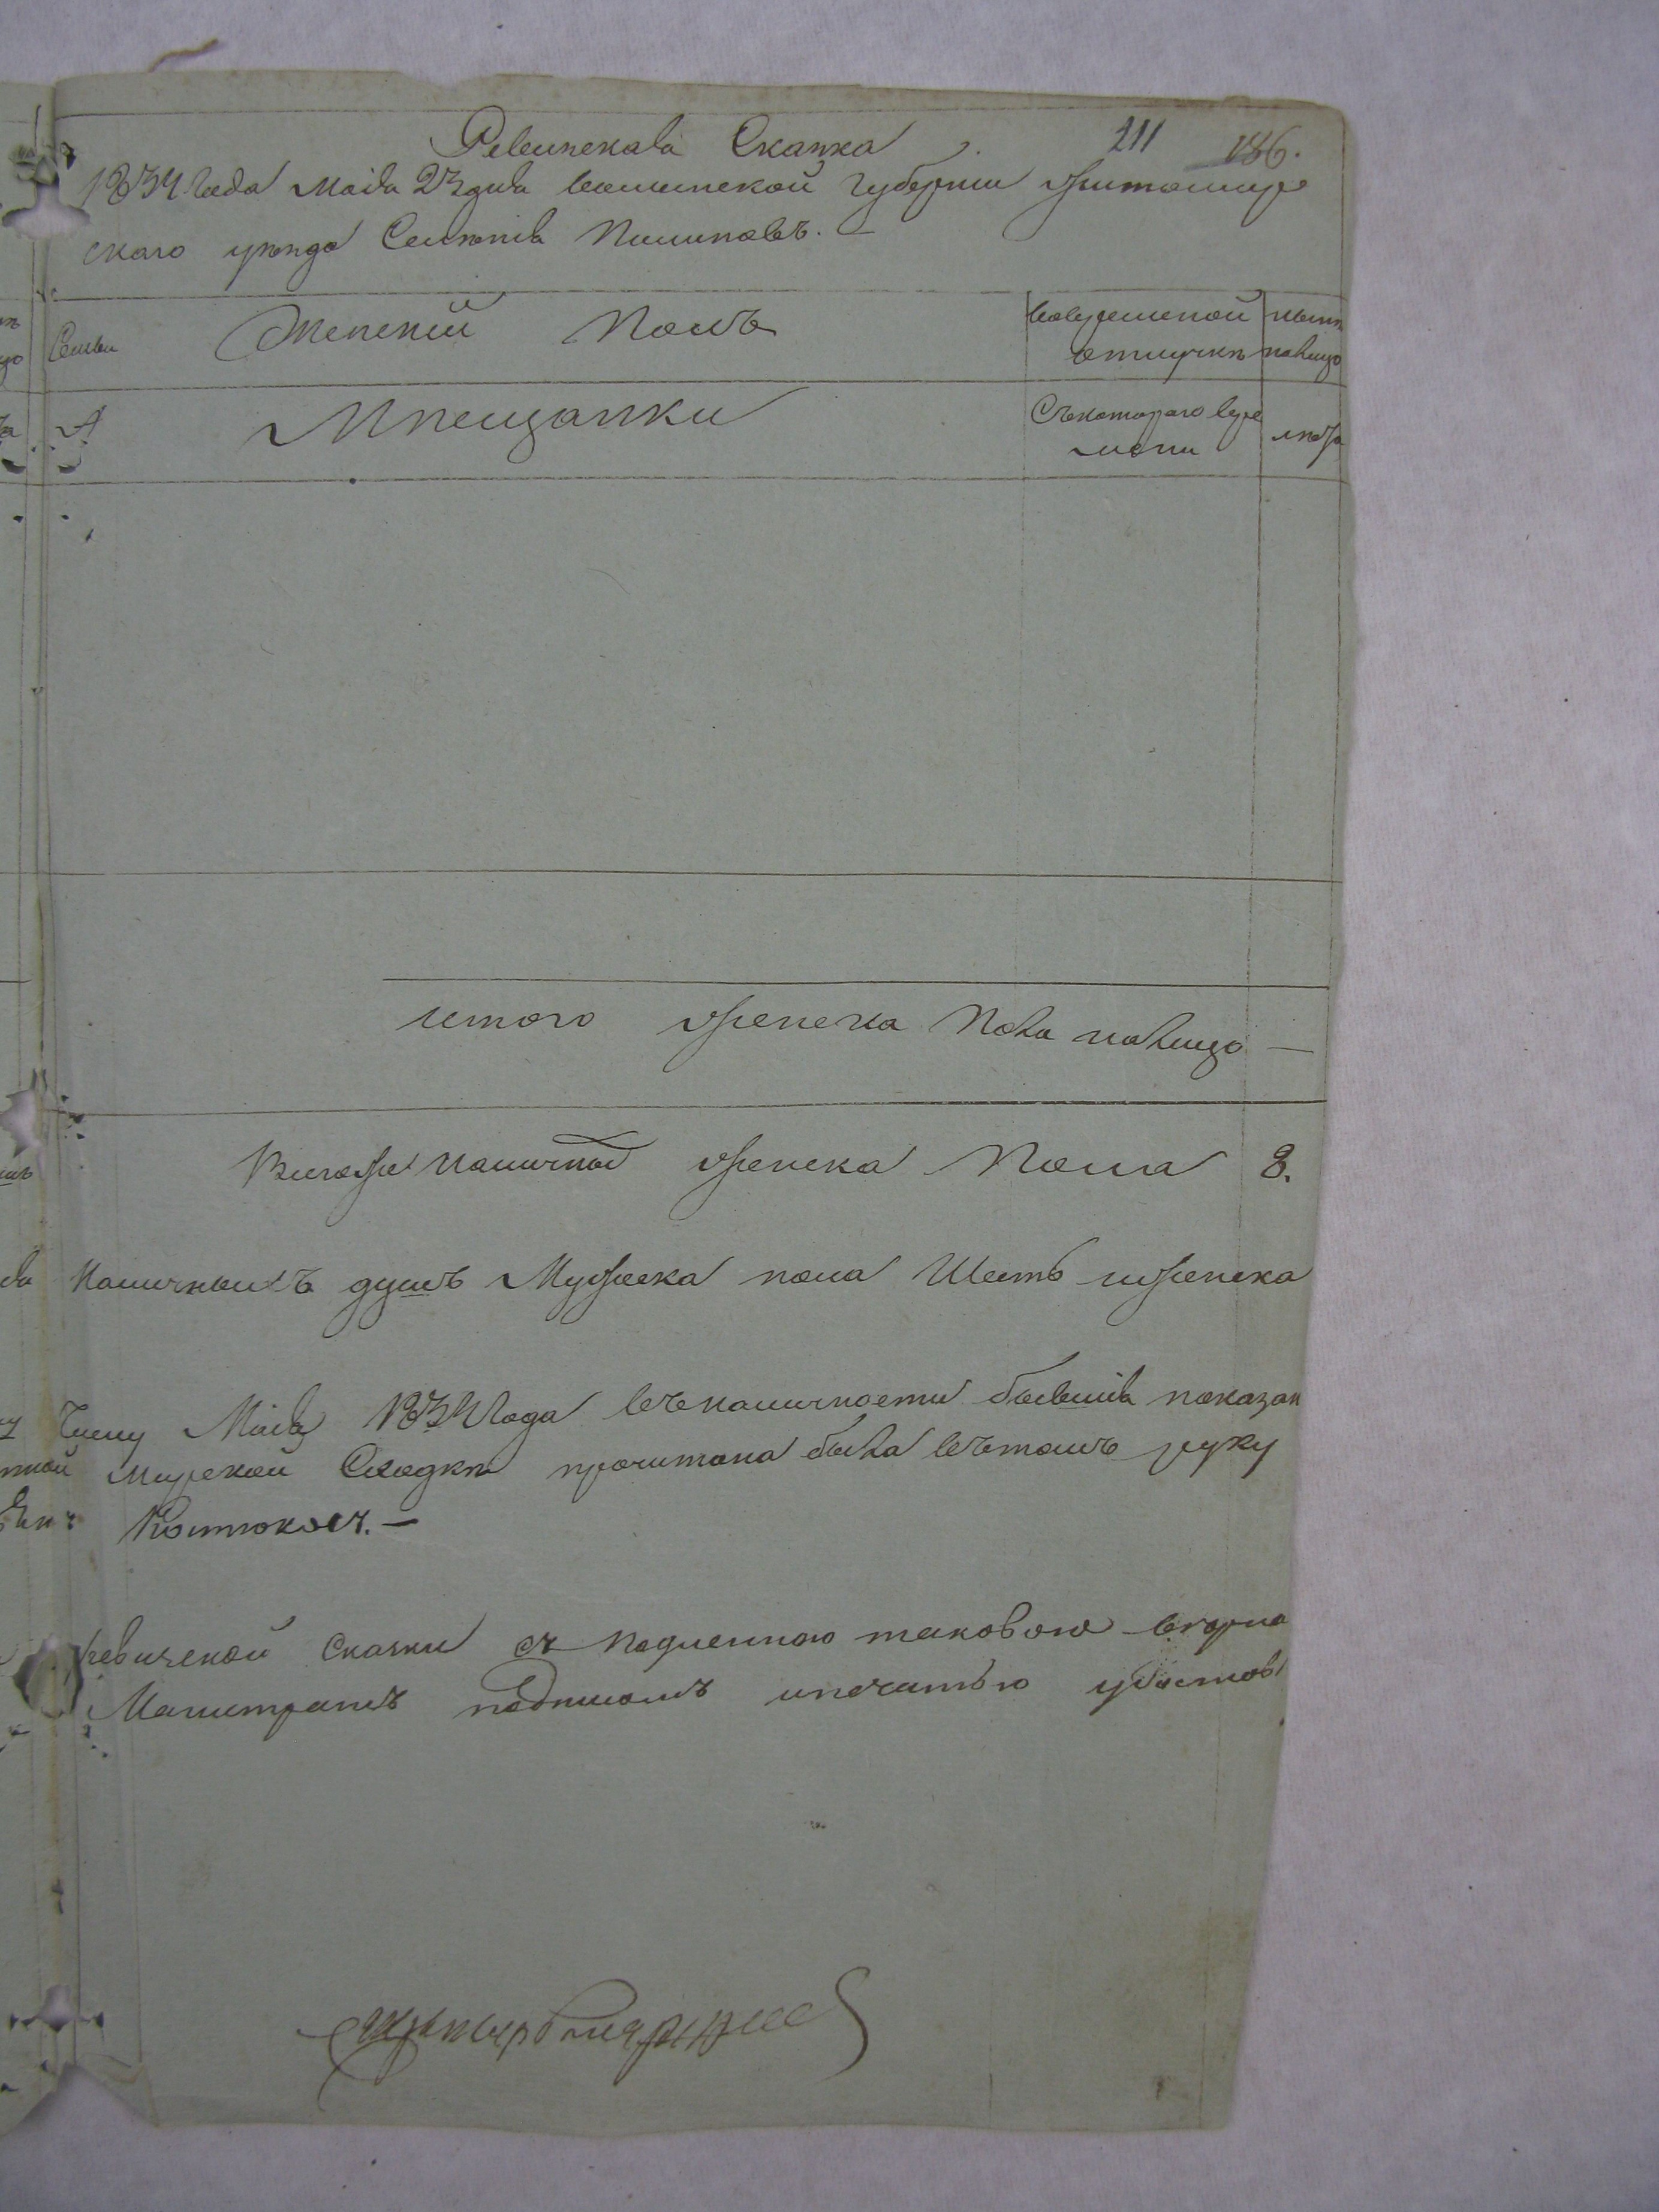 Ревизская Сказка
211 186.
1834 года Маія 23 дня Волынской губерніи Житомир
скаго уѣзда Селенія Пилиповъ.
Семьи Женскій Полъ Вовременной отлучкѣ нынѣ налицо
А Мѣщанки Съ котораго вре мени лѣта
итого женска пола налицо —
Всего же наличныхъ женска Пола 8.
наличныхъ душъ Мужеска пола Шесть и женска
Числу Маія 1834 года въ наличности бывшія показан
Мирской Сходкѣ прочитана была въ томъ руку
Костюкомъ. —
ревизской Сказки съ подленною таковою верна
Магистратъ подписомъ и печатью удостов